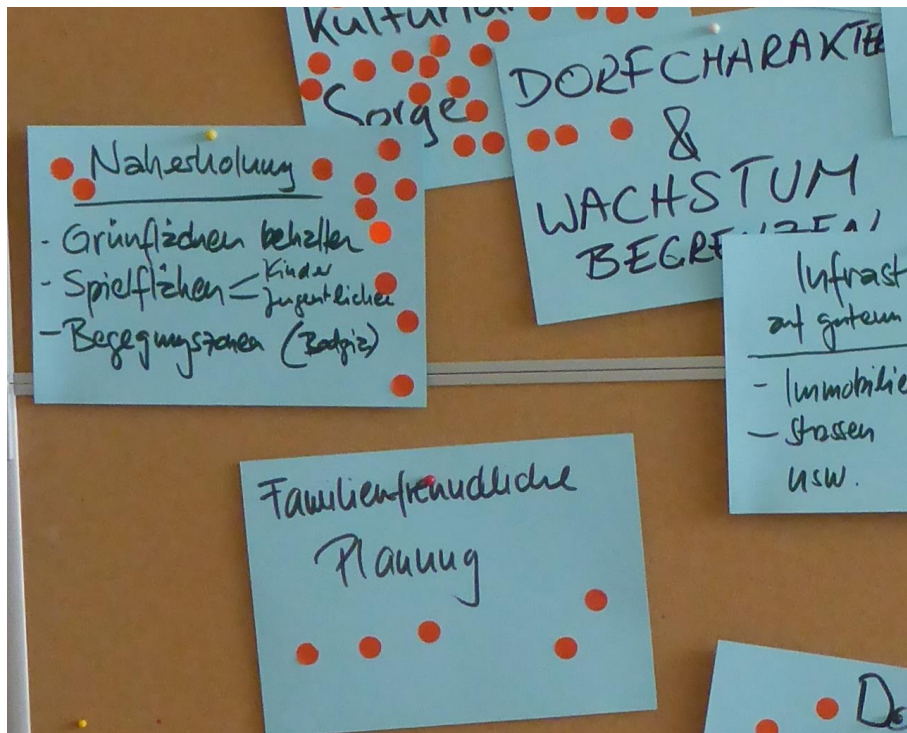 Sorge
DORFCHARAKTE
&
WACHSTUM
BEGRENZEN
Naherholung
- Grünflächen behalten
- Spielflächen Kinder
Jugentlicher
- Begegungszonen (Badgis)
Infrast
auf gutem
- Immobilie
- Strassen
usw.
Familienfreundliche
Planung